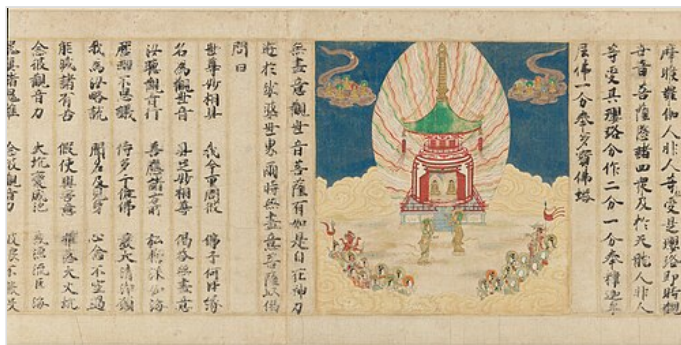 摩睺羅伽人非人等受是瓔珞即時觀
世音菩薩愍諸四衆及於天龍人非人
等受其瓔珞分作二分一分奉釋迦牟
尼佛一分奉多寶佛塔
無盡意觀世音菩薩有如是自在神力
遊於娑婆世界爾時無盡意菩薩以偈
問曰
世尊妙相具 我今重問彼 佛子何因緣
名為觀世音 具足妙相尊 偈答無盡意
汝聽觀音行 善應諸方所 弘誓深如海
歷劫不思議 侍多千億佛 發大清淨願
我為汝略說 聞名及見身 心念不空過
能滅諸有苦 假使興害意 推落大火坑
念彼觀音力 火坑變成池 或漂流巨海
龍魚諸鬼難 念彼觀音力 波浪不能沒